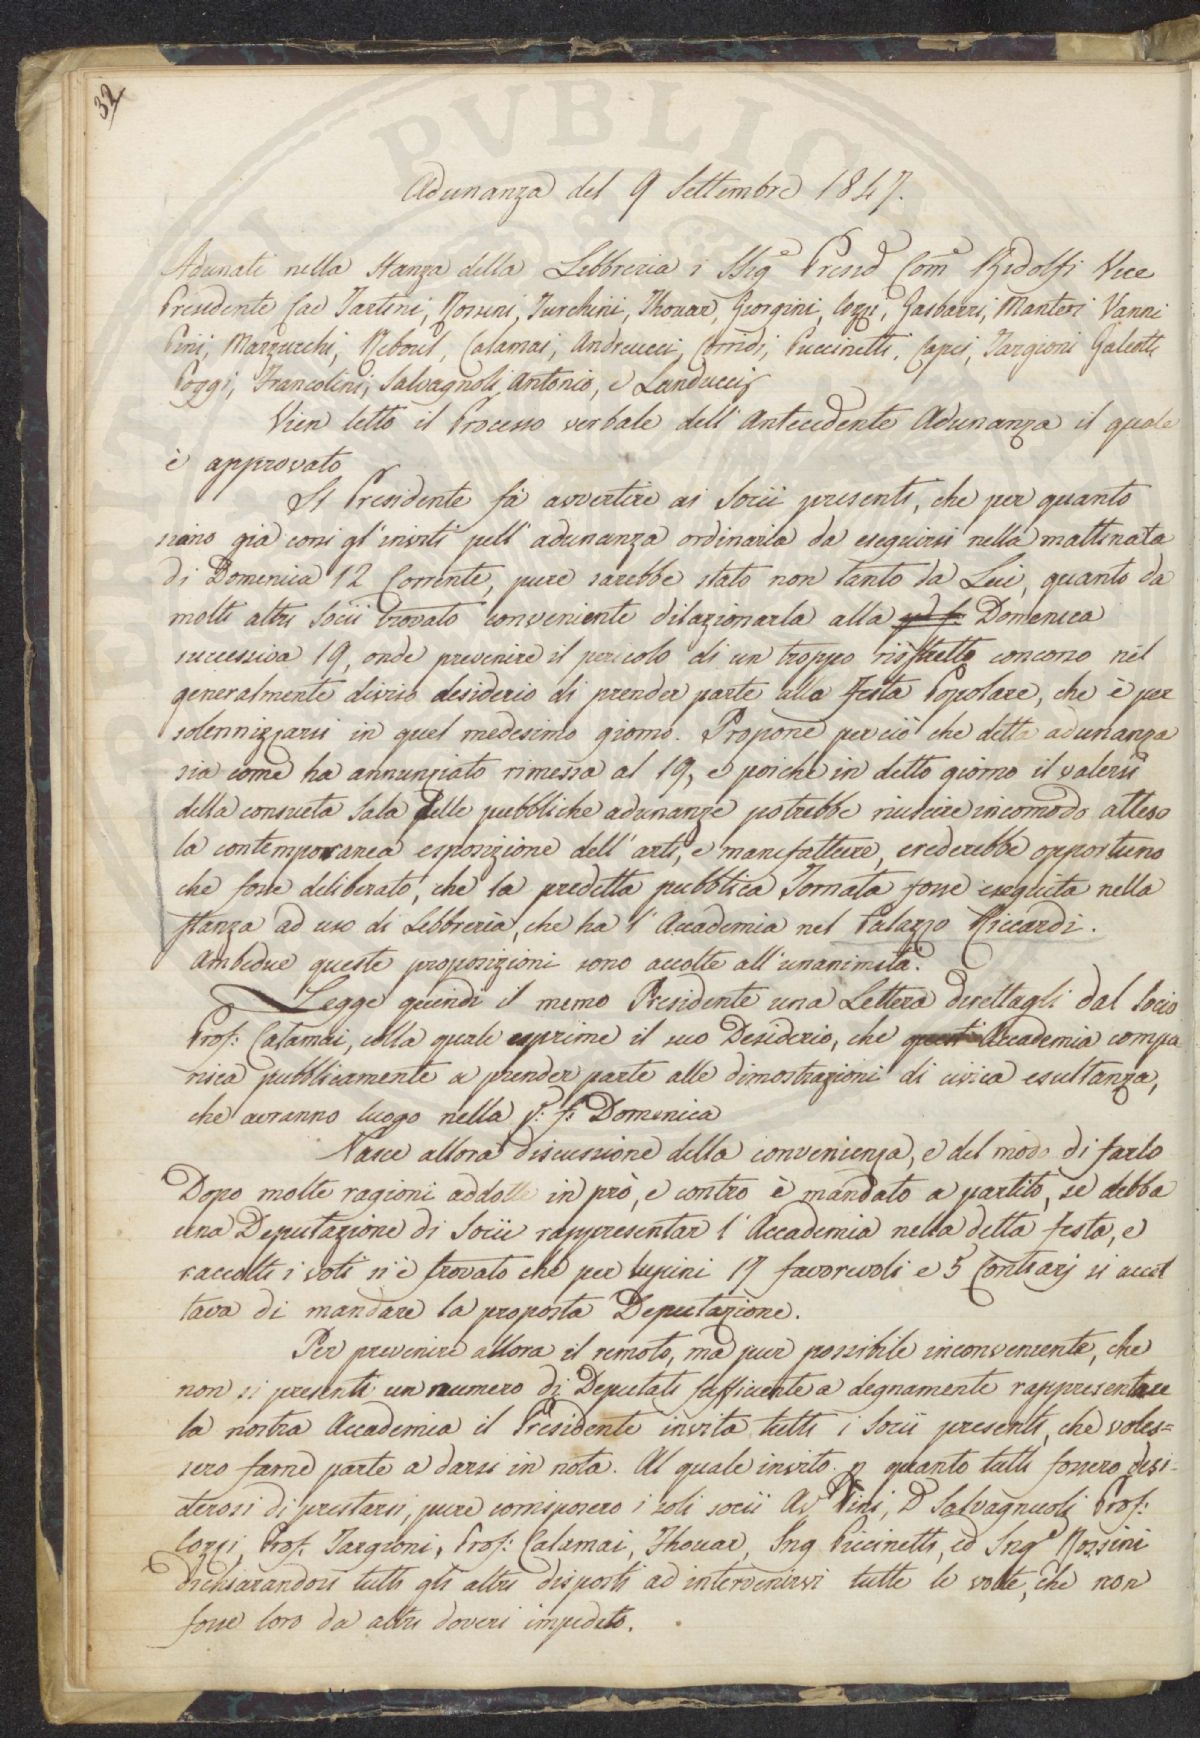 32
Adunanza del 9 Settembre 1847.
Adunati nella Stanza della Libbreria i SSig.e Presid. Com.e Ridolfi Vice
Presidente Cav Tartini, Rossini, Turchini, Thouar, Giorgini, Cozzi, Gasbarri, Manteri Vanni
Pini, Marzucchi, Reboul, Calamai, Andreucci, Corridi, Puccinetti, Capei, Targioni Galeotti
Poggi, Francolini, Salvagnoli Antonio, e Landucci
Vien letto il Processo verbale dell' Antecedente Adunanza il quale
è approvato
Il Presidente fà avvertire ai Socii presenti, che per quanto
siano già corsi gl' inviti pell' adunanza ordinaria da eseguirsi nella mattinata
di Domenica 12 Corrente, pure sarebbe stato non tanto da Lui, quanto da
molti altri Socii trovato conveniente dilazionarla alla Domenica
successiva 19, onde prevenire il pericolo di un troppo ristretto concorso nel
generalmente diviso desiderio di prender parte alla Festa Popolare, che è per
solennizzarsi in quel medesimo giorno. Propone perciò che detta adunanza
sia come ha annunziato rimessa al 19, e poiche in detto giorno il valersi
della consueta Sala delle pubbliche adunanze potrebbe riuscire incomodo atteso
la contemporanea esposizione dell' arti, e manifatture, crederebbe opportuno
che fosse deliberato, che la predetta pubblica Tornata fosse eseguita nella
stanza ad uso di Libbreria, che ha l' Accademia nel Palazzo Riccardi.
Ambedue queste proposizioni sono accolte all' unanimità.
Legge quindi il memo Presidente una Lettera direttagli dal Socio
Prof: Calamai, colla quale esprime il suo Desiderio, che Accademia compa
risca pubblicamente a prender parte alle dimostrazioni di civica esultanza,
che avranno luogo nella p: f: Domenica
Nasce allora discussione della convenienza, e del modo di farlo
Dopo molte ragioni addotte in prò, e contro è mandato a partito, se debba
una Deputazione di Socii rappresentar l' Accademia nella detta festa, e
raccolti i voti si è trovato che per lupini 17 favorevoli e 5 Contrarj si accet
tava di mandare la proposta Deputazione.
Per prevenire allora il remoto, ma pur possibile inconveniente, che
non si presenti un numero di Deputati sufficiente a degnamente rappresentare
la nostra Accademia il Presidente invita tutti i Socii presenti, che voles=
sero farne parte a darsi in nota. Al quale invito p quanto tutti fossero desi-
derosi di prestarsi, pure corrisposero i soli socii Av Pini, D Salvagnuoli Prof:
Cozzi, Prof. Targioni, Prof: Calamai, Thouar, Ing Piccinetti, ed Ing.e Rossini
dichiarandosi tutti gli altri disposti ad intervenirvi tutte le volte, che non
fosse loro da altri doveri impedito.